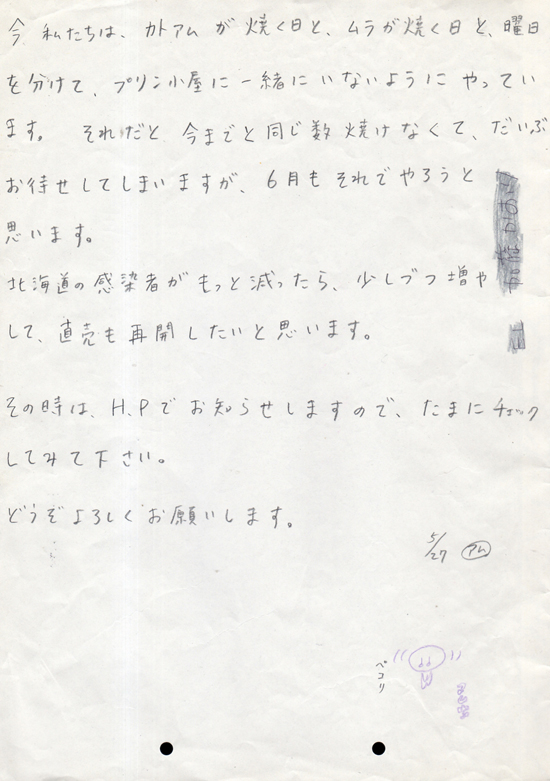 今 私たちは、カトアムが焼く日と、ムラが焼く日と、曜日
を分けて、プリン小屋に一緒にいないようにやってい
ます。 それだと今までと同じ数焼けなくて、だいぶ
お待せしてしまいますが、6月もそれでやろうと
思います。
北海道の感染者がもっと減ったら、少しづつ増や
して、直売も再開したいと思います。
その時は、H.Pでお知らせしますので、たまにチェック
してみて下さい。
どうぞよろしくお願いします。
5/27 アム
ペコリ